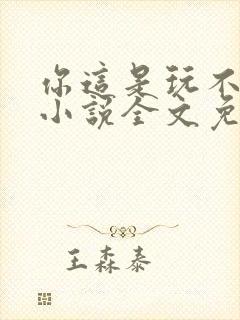 你這是玩不
小說全文免
王森泰